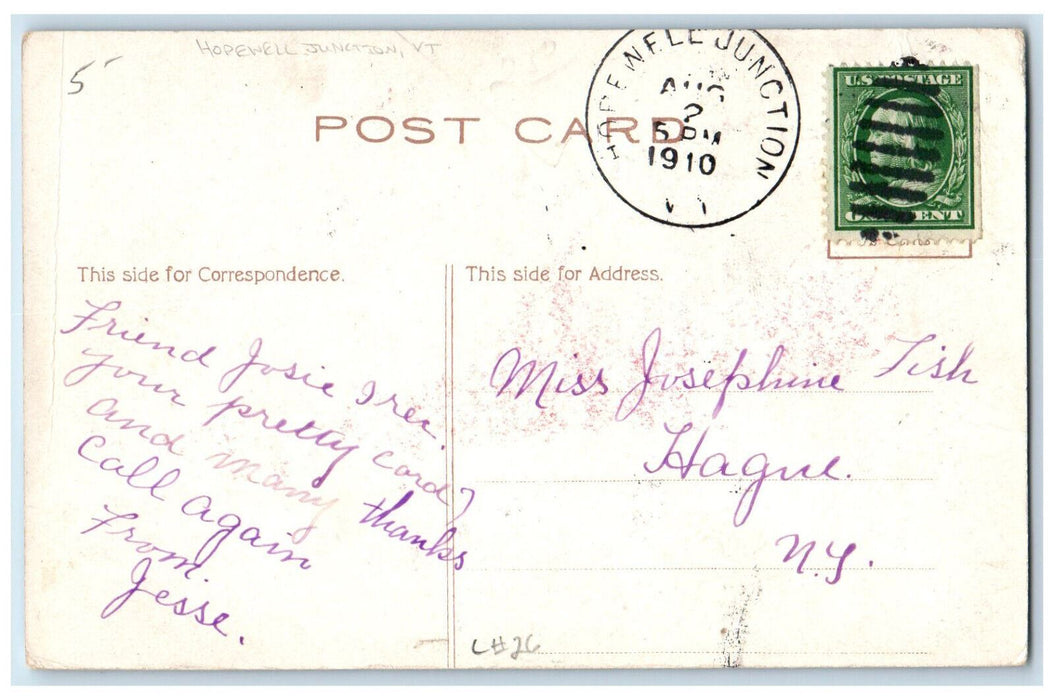 HOPEWELL JUNCTION, VT
5
POST CARD
HOPEWELL JUNCTION
AUG
2
5 PM
1910
U.S. POSTAGE
ONE CENT
This side for Correspondence.
This side for Address.
Friend Josie I rec.
your pretty card
and many thanks
Call Again
From.
Jesse.
Miss Josephine Fish
Hague.
N.Y.
L#26